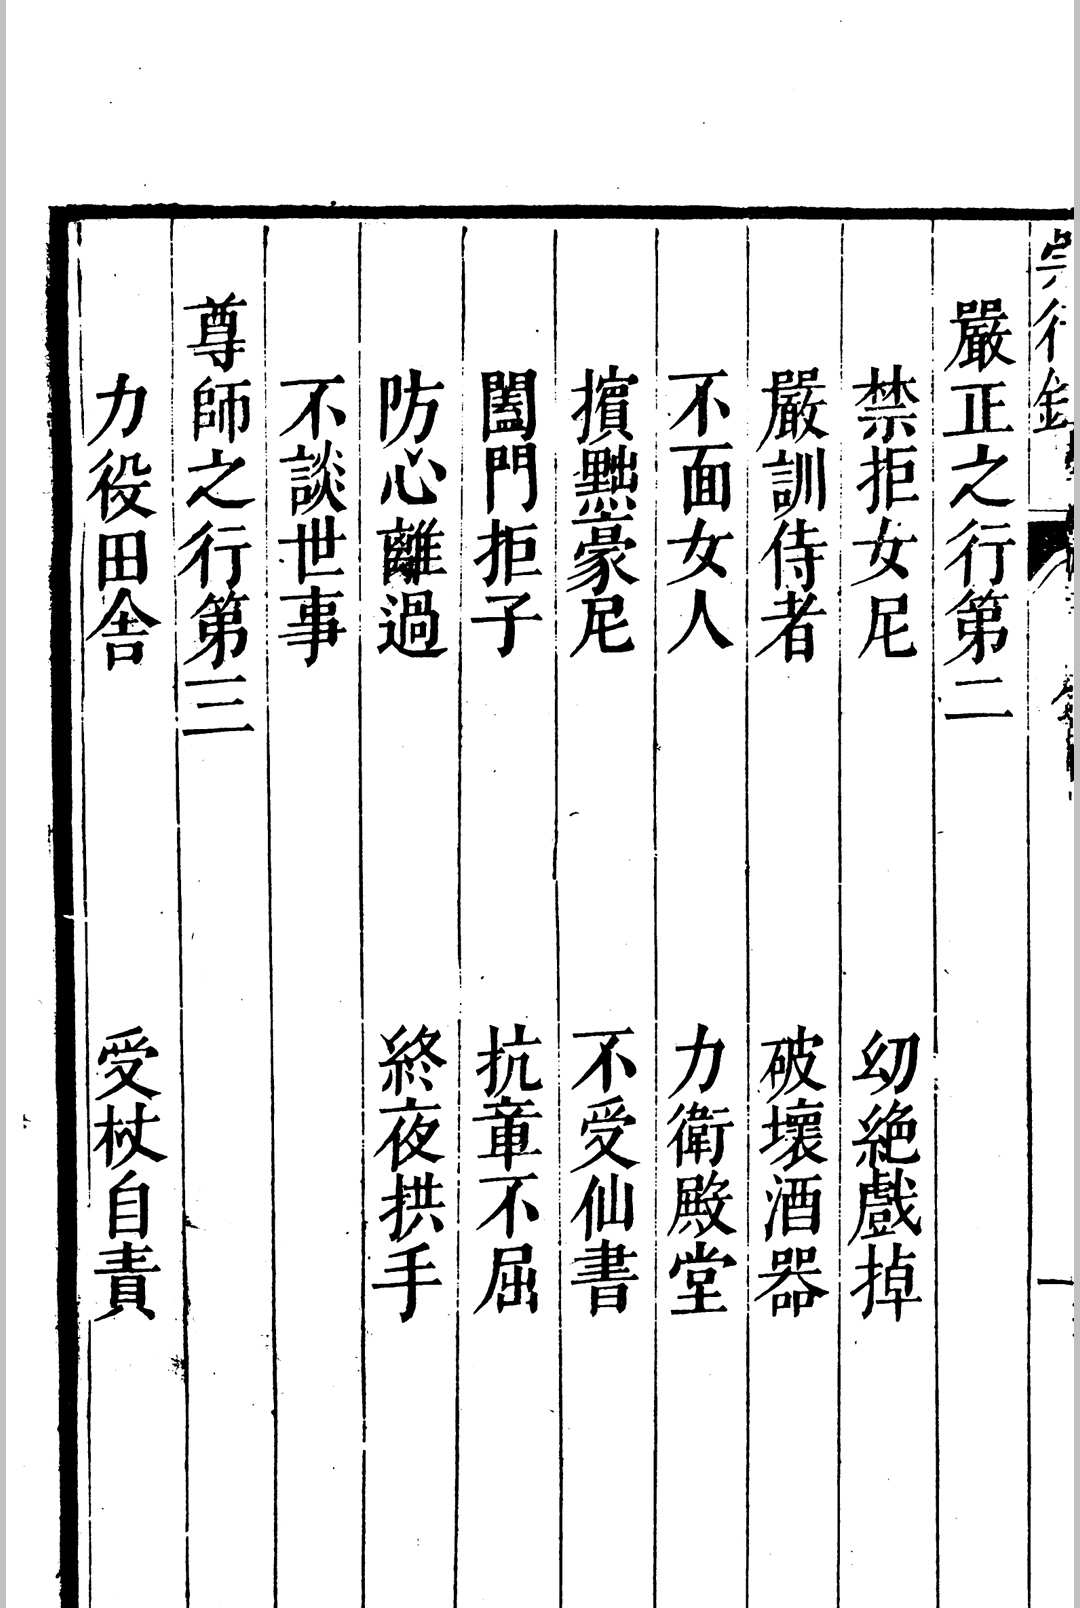 嚴正之行第二
禁拒女尼　幼絶戲掉
嚴訓侍者　破壞酒器
不面女人　力衛殿堂
擯黜豪尼　不受仙書
闔門拒子　抗章不屈
防心離過　終夜拱手
不談世事
尊師之行第三
力役田舍　受杖自責